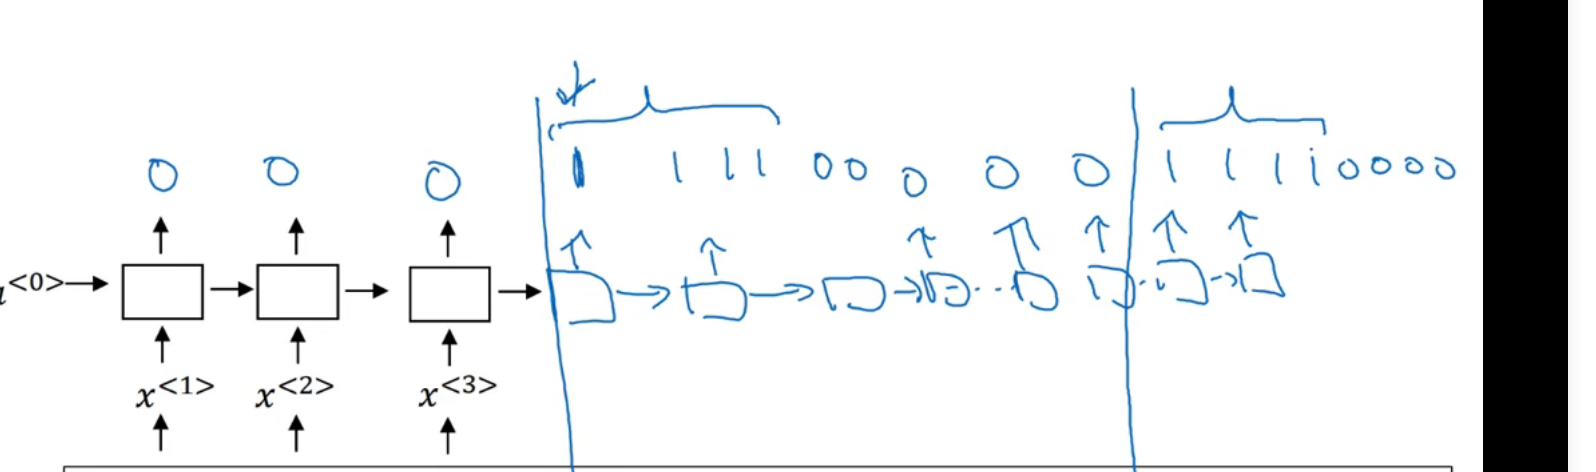 0 0 0 1 1 1 1 0 0 0 0 0 1 1 1 1 0 0 0 0
<0>
x<1> x<2> x<3>